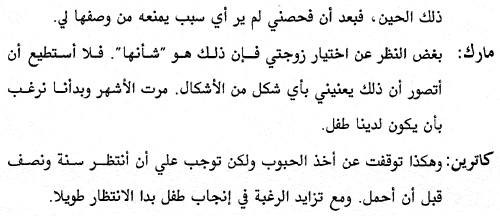 ذلك الحين، فبعد أن فحصني لم ير أي سبب يمنعه من وصفها لي.
مارك: بغض النظر عن اختيار زوجتي فإن ذلك هو "شأنها". فلا أستطيع أن
أتصور أن ذلك يعنيني بأي شكل من الأشكال. مرت الأشهر وبدأنا نرغب
بأن يكون لدينا طفل.
كاترين: وهكذا توقفت عن أخذ الحبوب ولكن توجب علي أن أنتظر سنة ونصف
قبل أن أحمل. ومع تزايد الرغبة في إنجاب طفل بدا الانتظار طويلا.